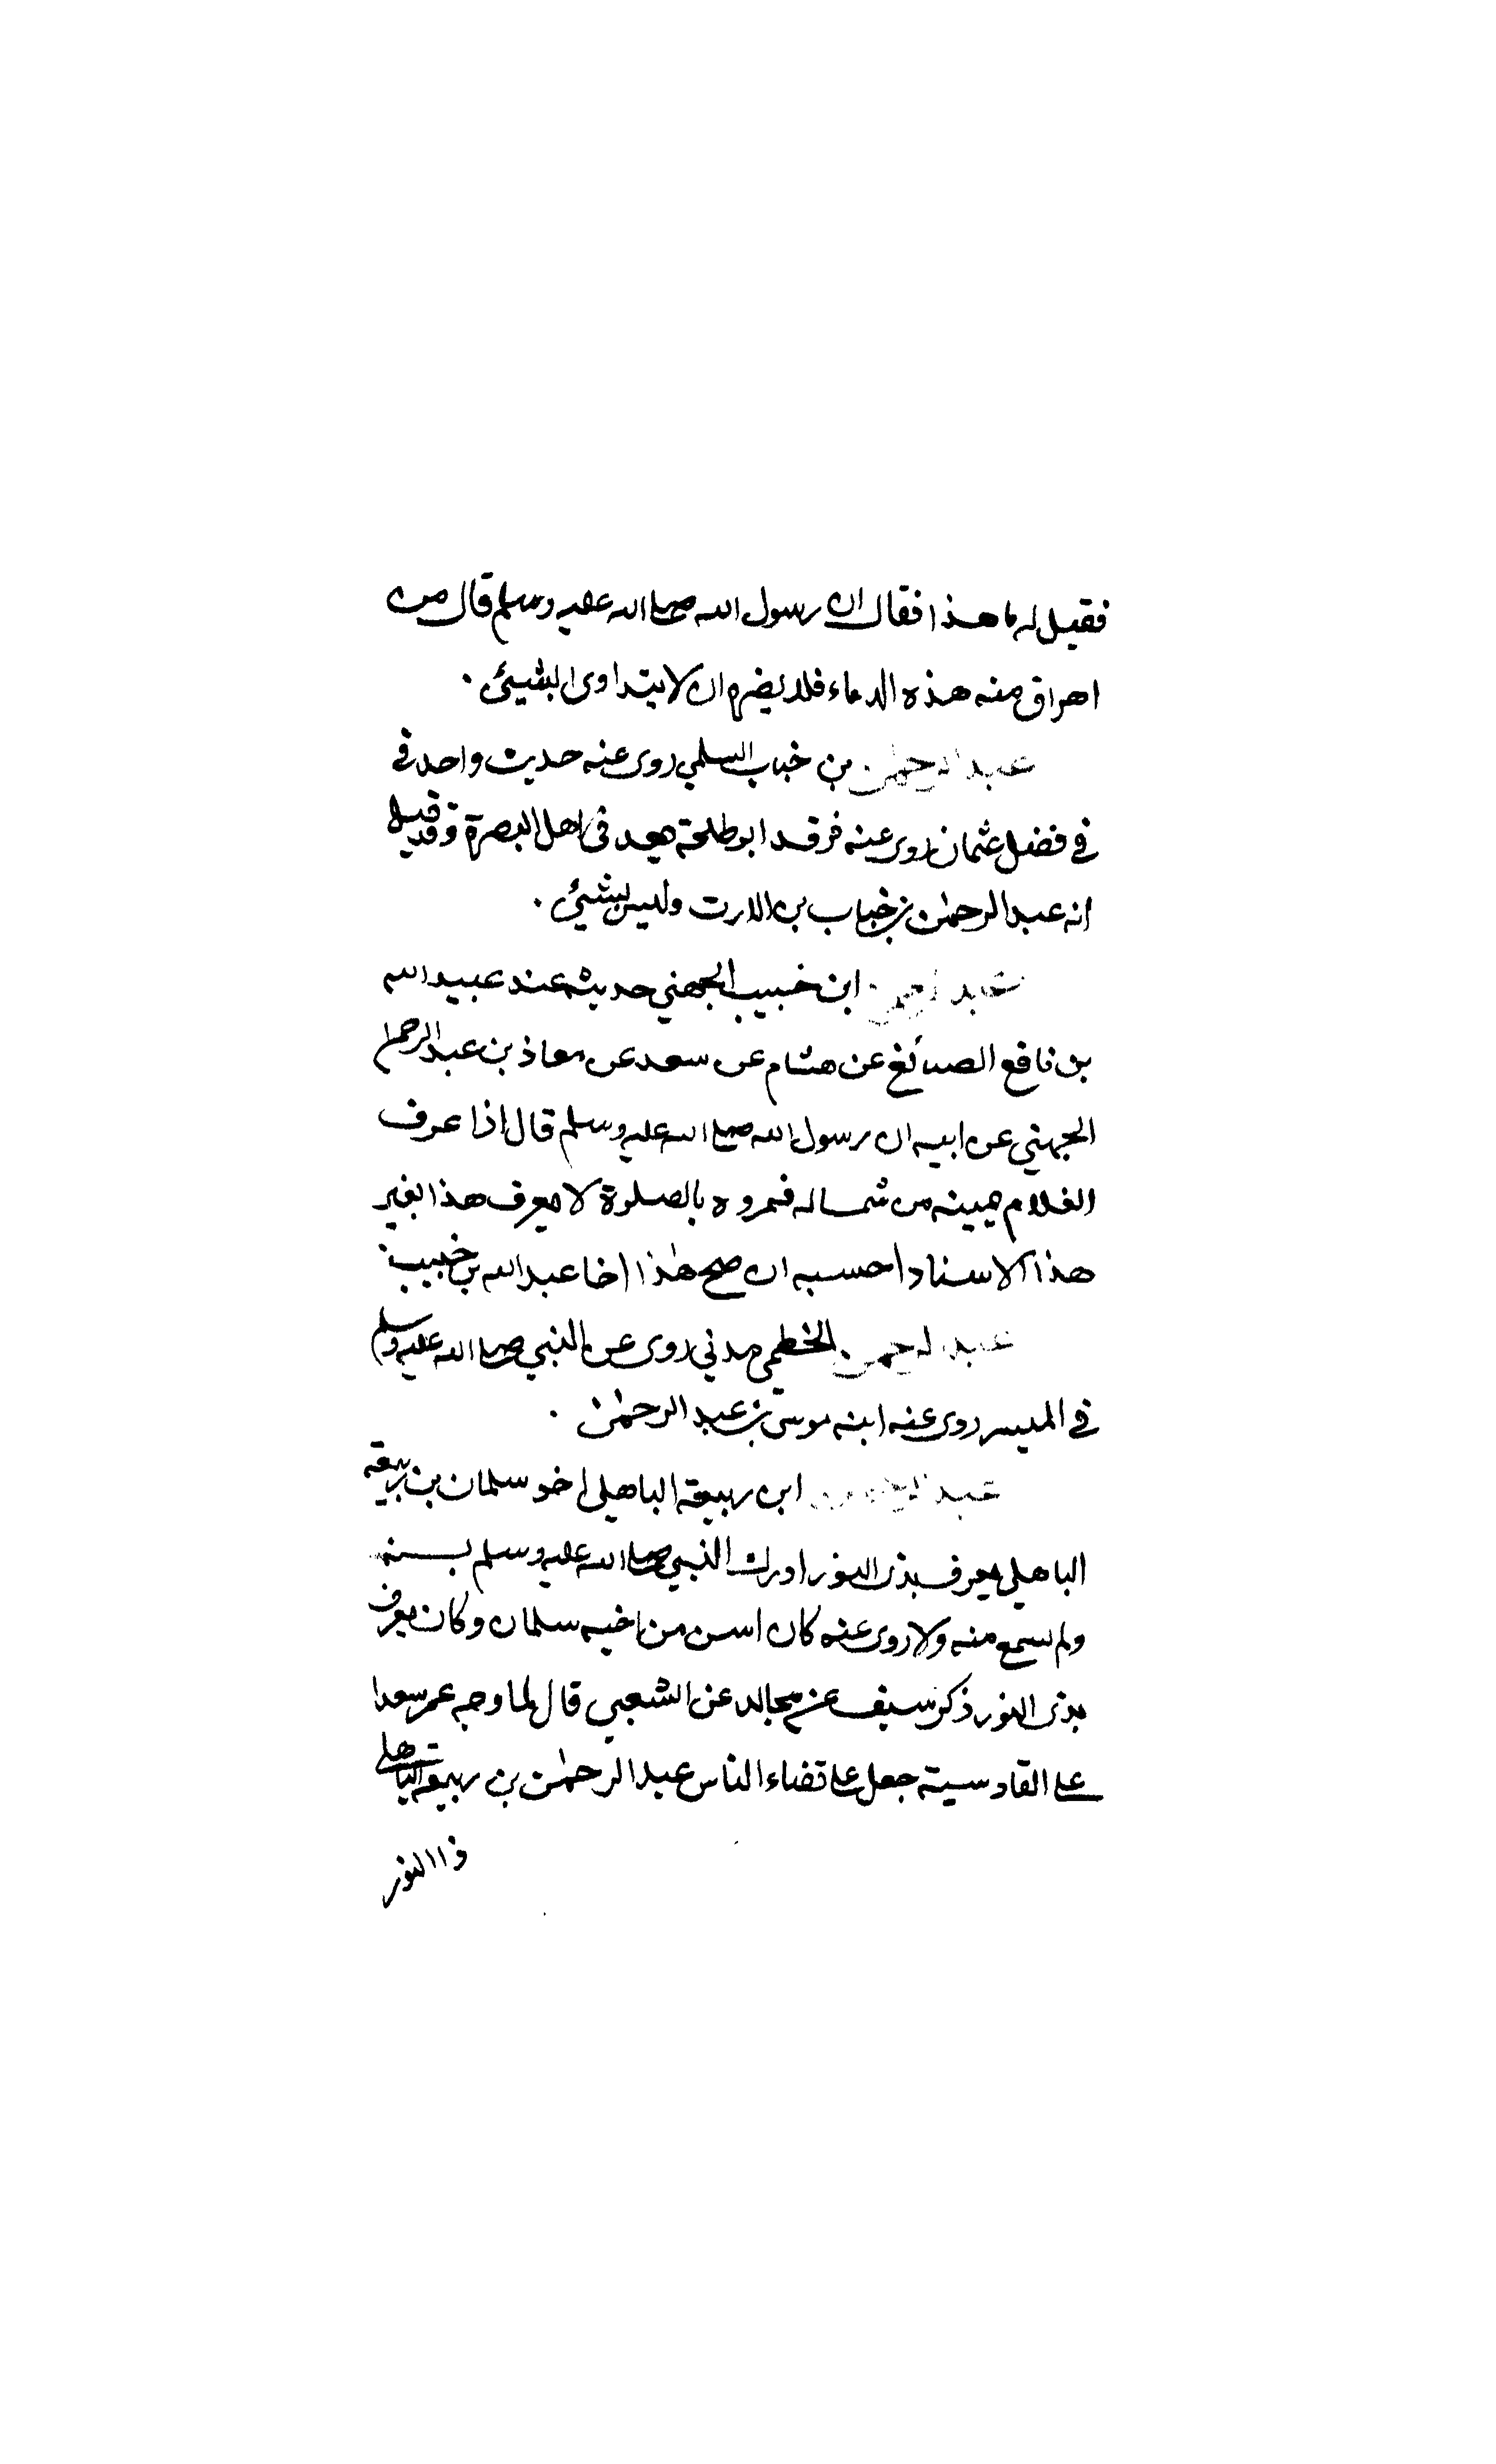 فقيل له ما هذا فقال ان رسول الله صلى الله عليه وسلم قال من
اهراق منه هذه الدماء فلا يضره ان لا يتداوى لشيئ .
عبد الرحمن بن خباب السلمي روى عنه حديث واحد في
في فضل عثمان روى عنه فرقد ابو طلحة يعد في اهل البصرة وقد قيل
انه عبد الرحمٰن بن خباب بن الارت وليس بشيئ .
عبد الرحمن ابن خبيب الجهني حديثه عند عبيد الله
بن نافع الصائغ عن هشام عن سعد عن معاذ بن عبد الرحمن
الجهني عن ابيه ان رسول الله صلى الله عليه وسلم قال اذا عرف
الغلام يمينه من شماله فمروه بالصلوة لا يعرف هذا بغير
هذا الاسناد احسبه ان صح هذا اخا عبد الله بن خبيب .
عبد الرحمن الخطمي مدني روى عن النبي صلى الله عليه وسلم
في الميسر روى عنه ابنه موسى بن عبد الرحمٰن .
عبد الرحمن ابن ربيعة الباهلي اخو سلمان بن ربيعة
الباهلي يعرف بذى النور ادرك النبي صلى الله عليه وسلم بسنه
ولم سمع منه ولا روى عنه كان اسن من اخيه سلمان وكان يعرف
بذى النور ذكر سيف عن مجالد عن الشعبي قال لما وجه عمر سعدا
على القادسية جعل على قضاء الناس عبد الرحمٰن بن ربيعة الباهلى
ذا النور